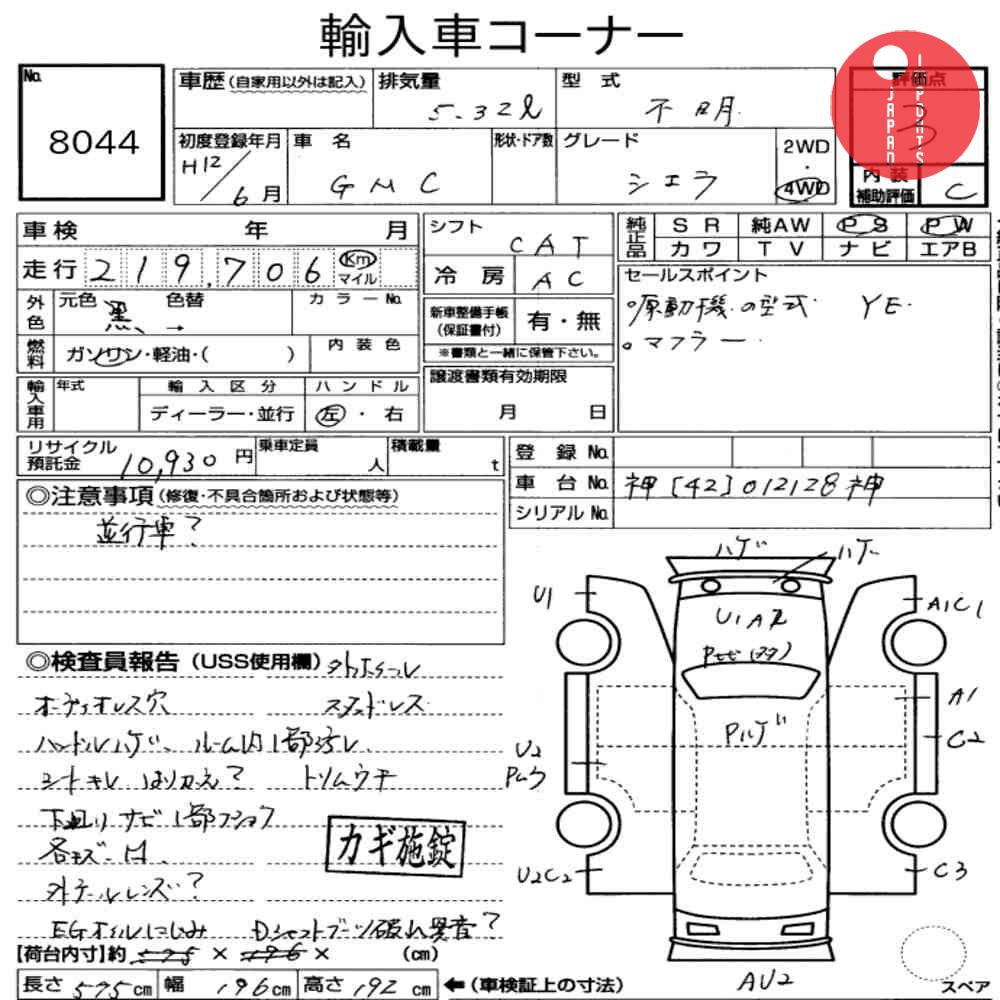 輸入車コーナー
No.
8044
車歴(自家用以外は記入)
排気量
5.32ℓ
型式
不明
評価点
3
JAPAN
IMPORTS
初度登録年月
H12/6月
車名
GMC
形状・ドア数
グレード
シエラ
2WD
・
4WD
内装
補助評価
C
車検 年 月
走行 219,706 Km マイル
シフト
CAT
冷房
AC
純正品
SR 純AW PS PW
カワ TV ナビ エアB
セールスポイント
。原動機の型式 YE
。マフラー
外色
元色 黒 → 色替
カラーNo.
新車整備手帳
(保証書付)
有・無
※書類と一緒に保管下さい。
燃料
ガソリン・軽油・( )
内装色
輸入車用
年式
輸入区分
ディーラー・並行
ハンドル
左・右
譲渡書類有効期限
月 日
リサイクル
預託金 10,930 円
乗車定員
人
積載量
t
登録No.
車台No. 神[42]012128神
シリアルNo.
◎注意事項(修復・不具合箇所および状態等)
並行車?
◎検査員報告(USS使用欄)
オーディオレス穴 スタッドレス
ハンドルハゲ、ルーム内1部汚レ、
シートキレ はりかえ? トリムウキ
下廻りサビ1部フショク
各キズ・凹、
カギ施錠
外テールレンズ?
EGオイルにじみ Dシャフトブーツ破れ異音?
ハゲ
ハゲ
U1
A1C1
U1A2
A1
C2
Pハゲ
U2
U2C2
C3
AU2
スペア
【荷台内寸】約 575 × 196 × (cm)
長さ 575cm 幅 196cm 高さ 192cm ←(車検証上の寸法)